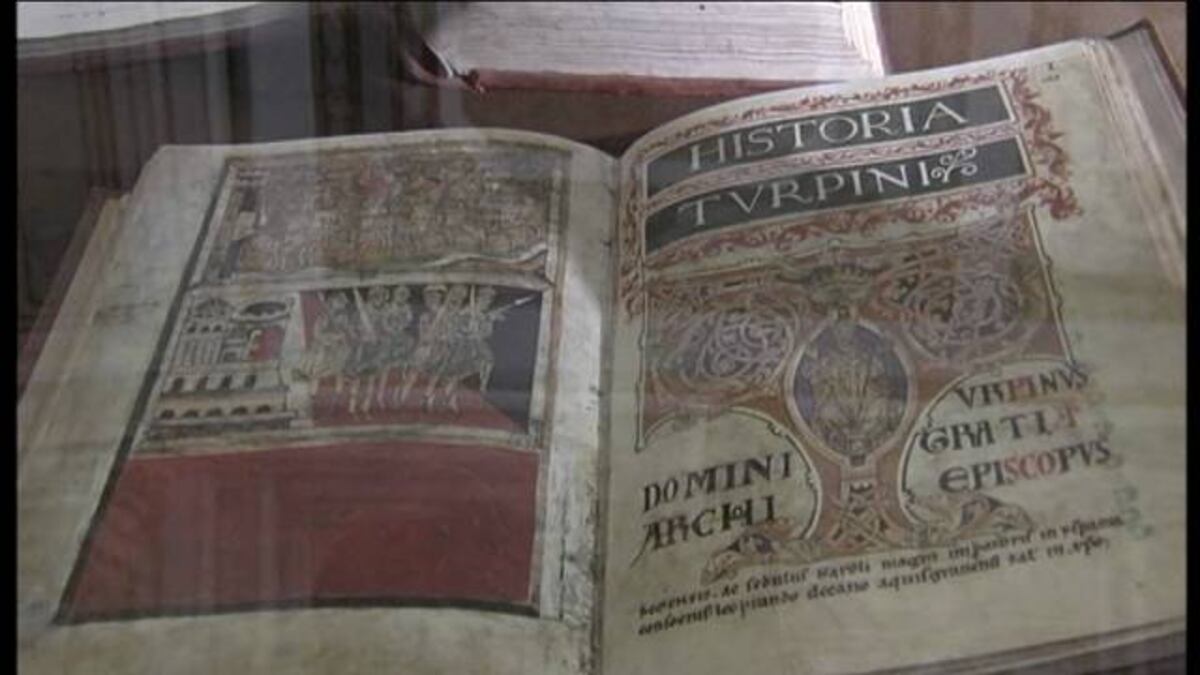 HISTORIA
TVRPINI
VRPINVS
DOMINI GRATIA
ARCHI EPISCOPVS
ac sedulus karoli magni imperatoris in
decano aquisgranensi sal in